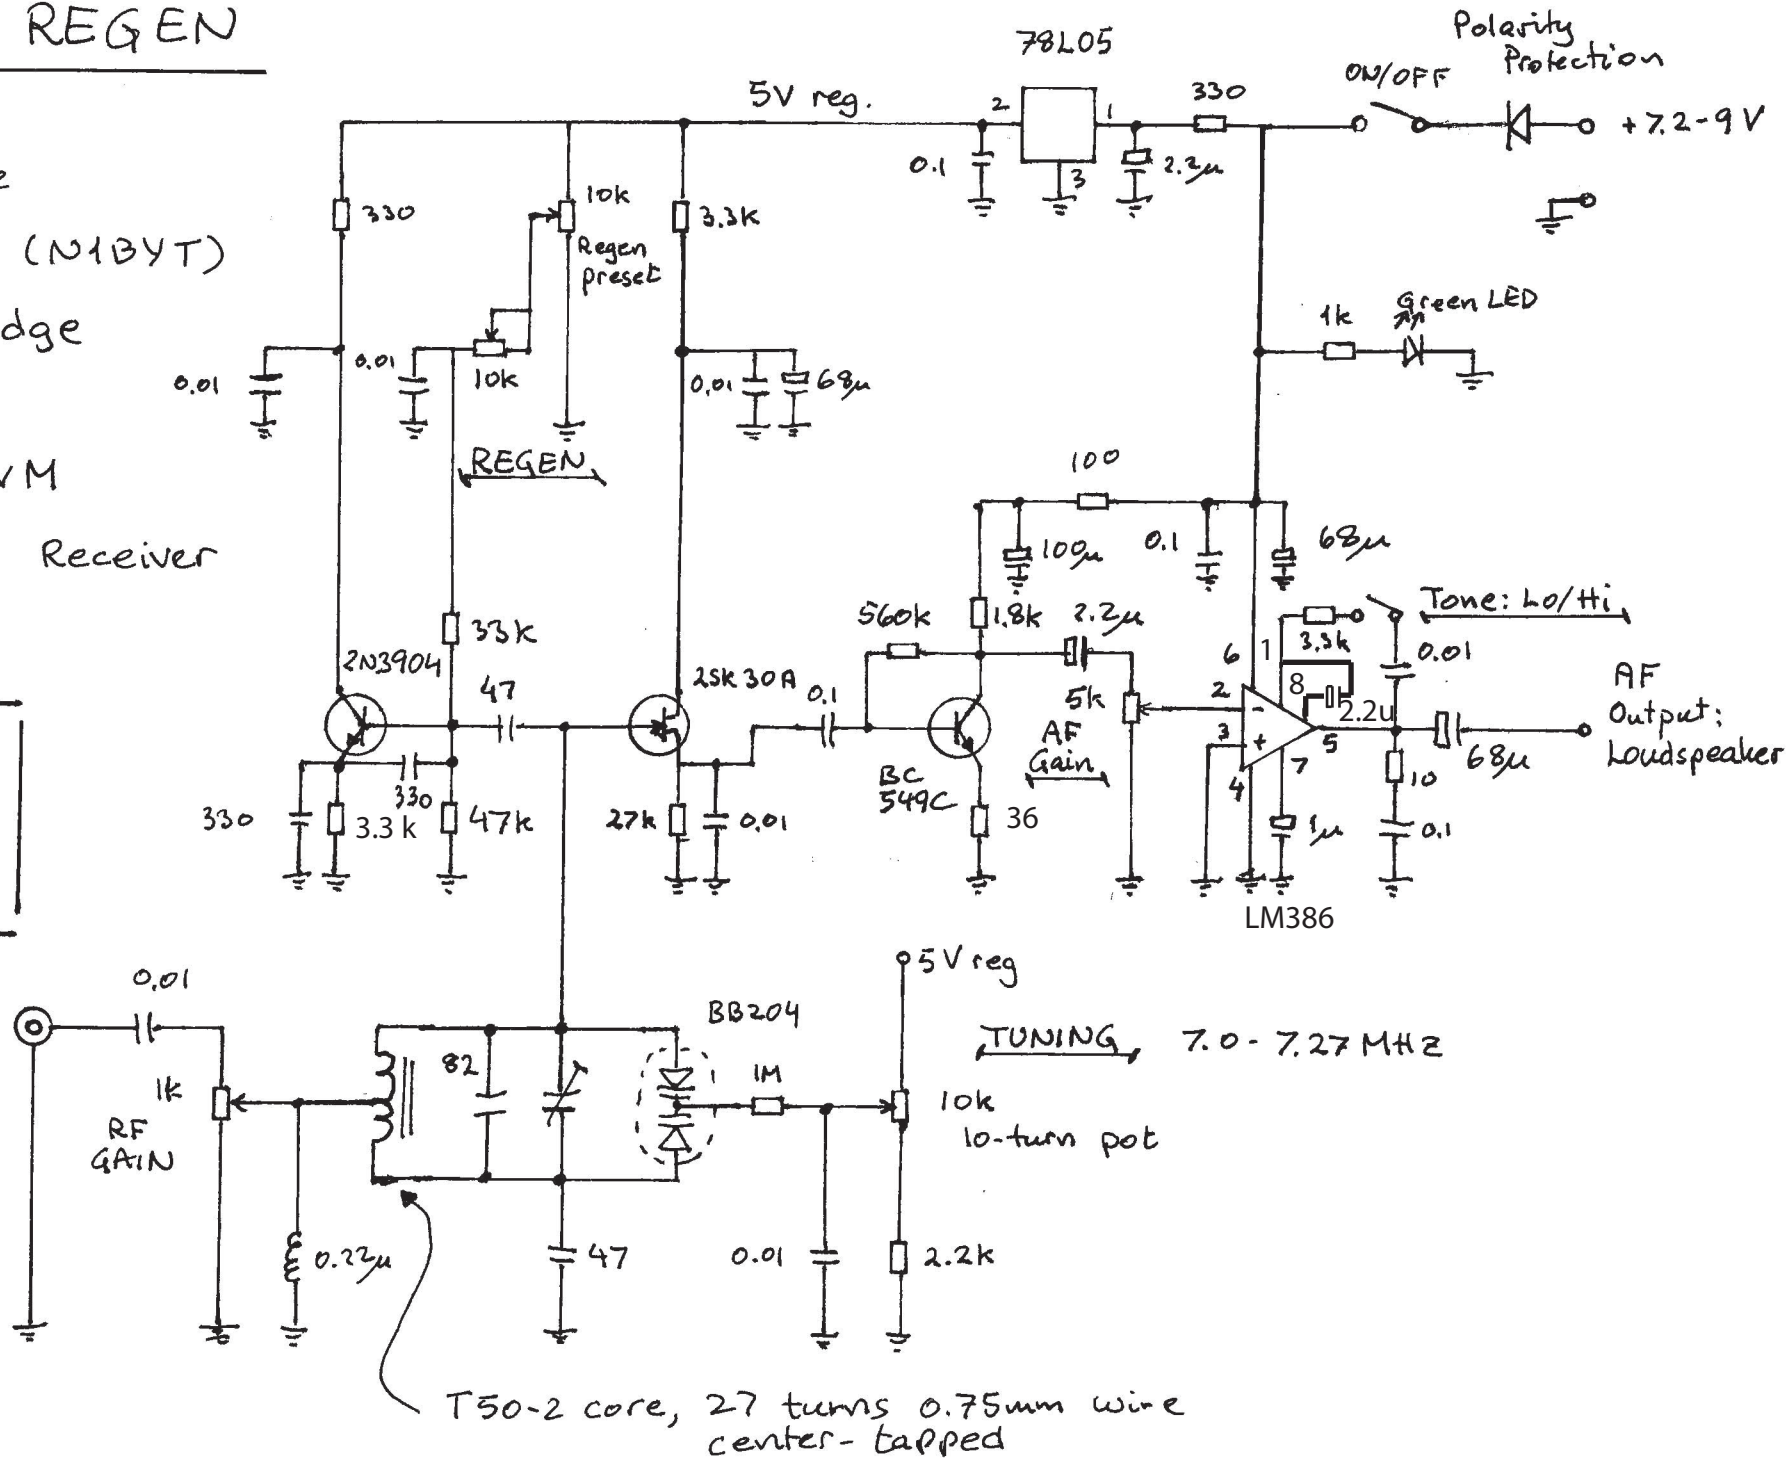 REGEN
(N1BYT)
dge
VM
Receiver
78L05
Polarity
Protection
ON/OFF
5V reg.
2
1
3
330
+7.2-9V
0.1
2.2µ
330
10k
Regen
preset
3.3k
1k
Green LED
0.01
0.01
10k
0,01
68µ
REGEN
100
100µ
0.1
68µ
33k
560k
1.8k
2.2µ
3.3k
Tone: Lo/Hi
0.01
2N3904
47
2SK30A
0.1
5k
6
1
8
2.2u
2
3
4
5
7
AF
Output:
Loudspeaker
AF
Gain
BC
549C
68µ
10
330
330
3.3 k
47k
27k
0,01
36
1µ
0.1
LM386
0,01
5V reg
BB204
TUNING 7.0-7.27MHZ
82
1M
1k
RF
GAIN
10k
10-turn pot
0.22µ
47
0.01
2.2k
T50-2 core, 27 turns 0.75mm wire
center-tapped